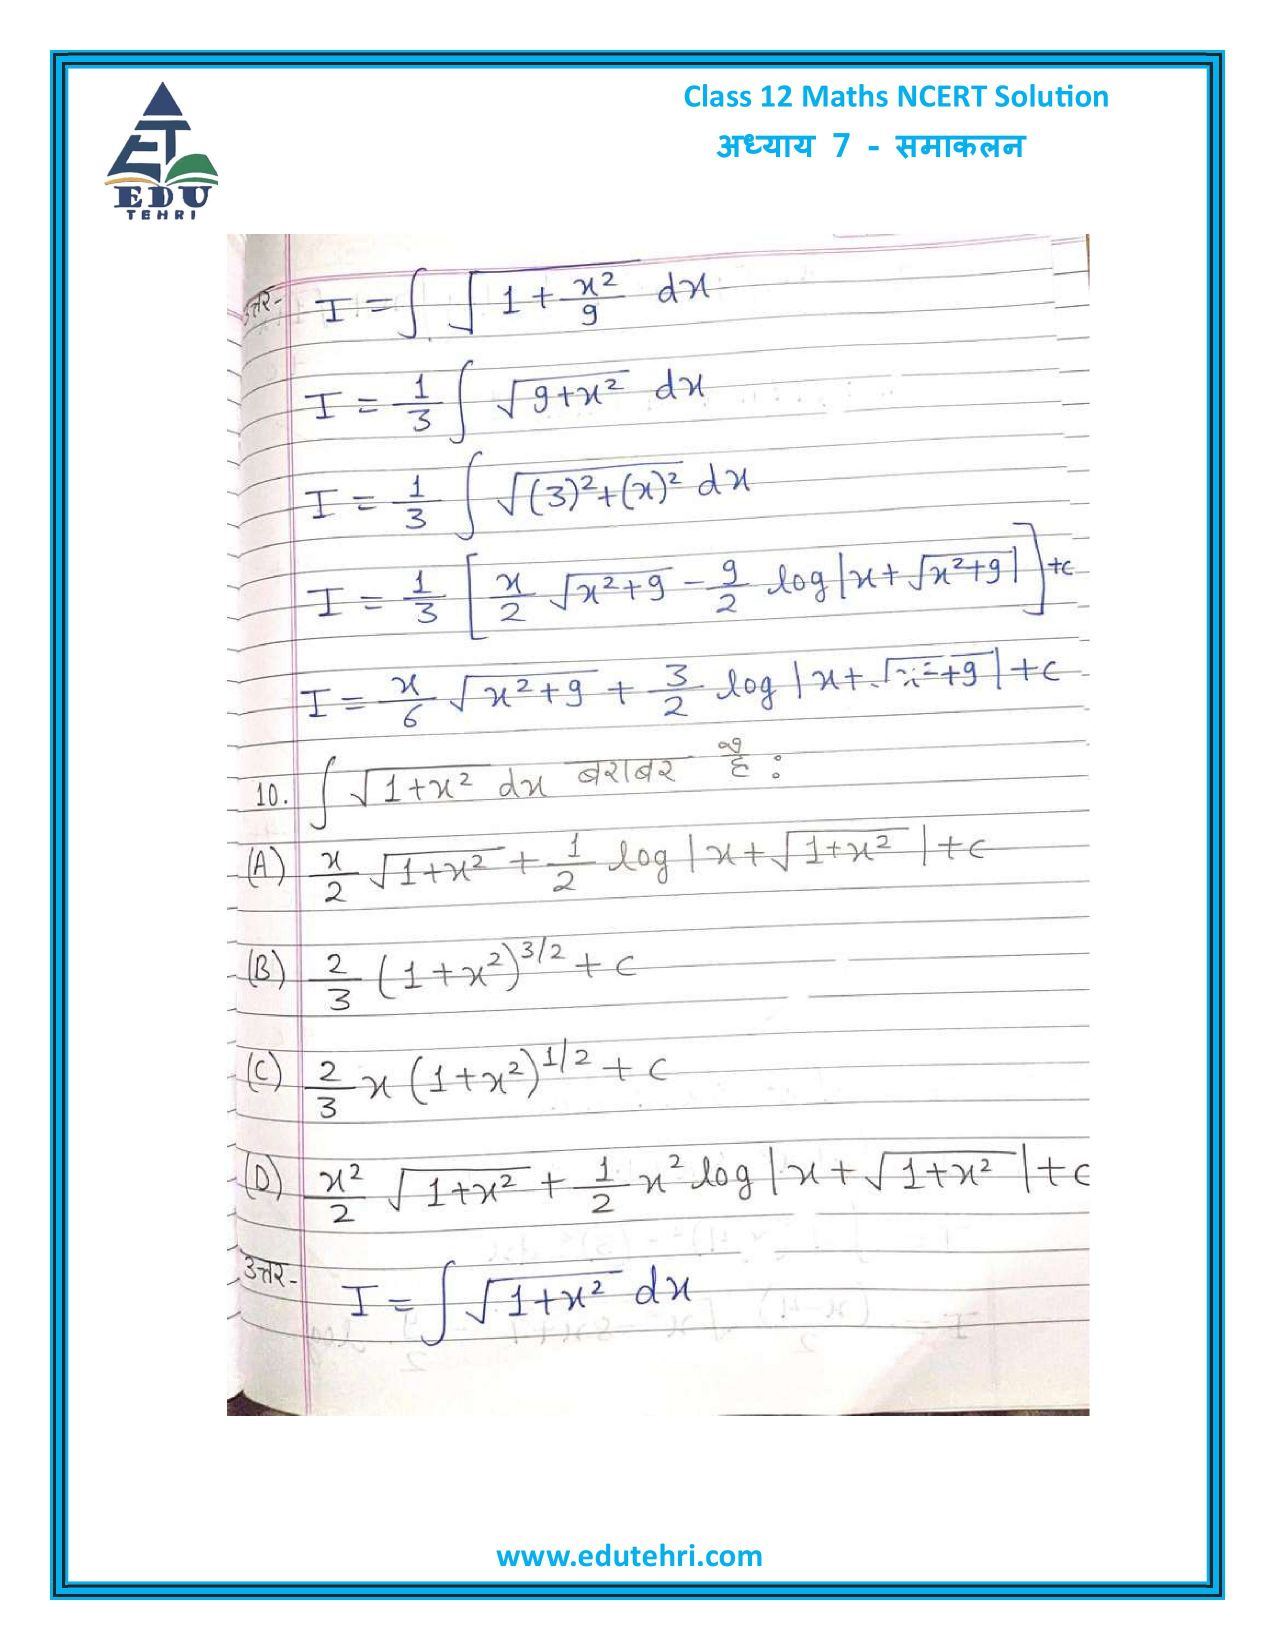 Class 12 Maths NCERT Solution
अध्याय 7 - समाकलन
EDU
TEHRI
उत्तर- I = ∫ √(1 + x²/9) dx
I = 1/3 ∫ √(9+x²) dx
I = 1/3 ∫ √((3)²+(x)²) dx
I = 1/3 [x/2 √(x²+9) - 9/2 log|x+√(x²+9)|] + c
I = x/6 √(x²+9) + 3/2 log|x+√(x²+9)| + c
10. ∫ √(1+x²) dx बराबर है :
(A) x/2 √(1+x²) + 1/2 log|x+√(1+x²)| + c
(B) 2/3 (1+x²)^3/2 + c
(C) 2/3 x (1+x²)^1/2 + c
(D) x²/2 √(1+x²) + 1/2 x² log|x+√(1+x²)| + c
उत्तर- I = ∫ √(1+x²) dx
www.edutehri.com